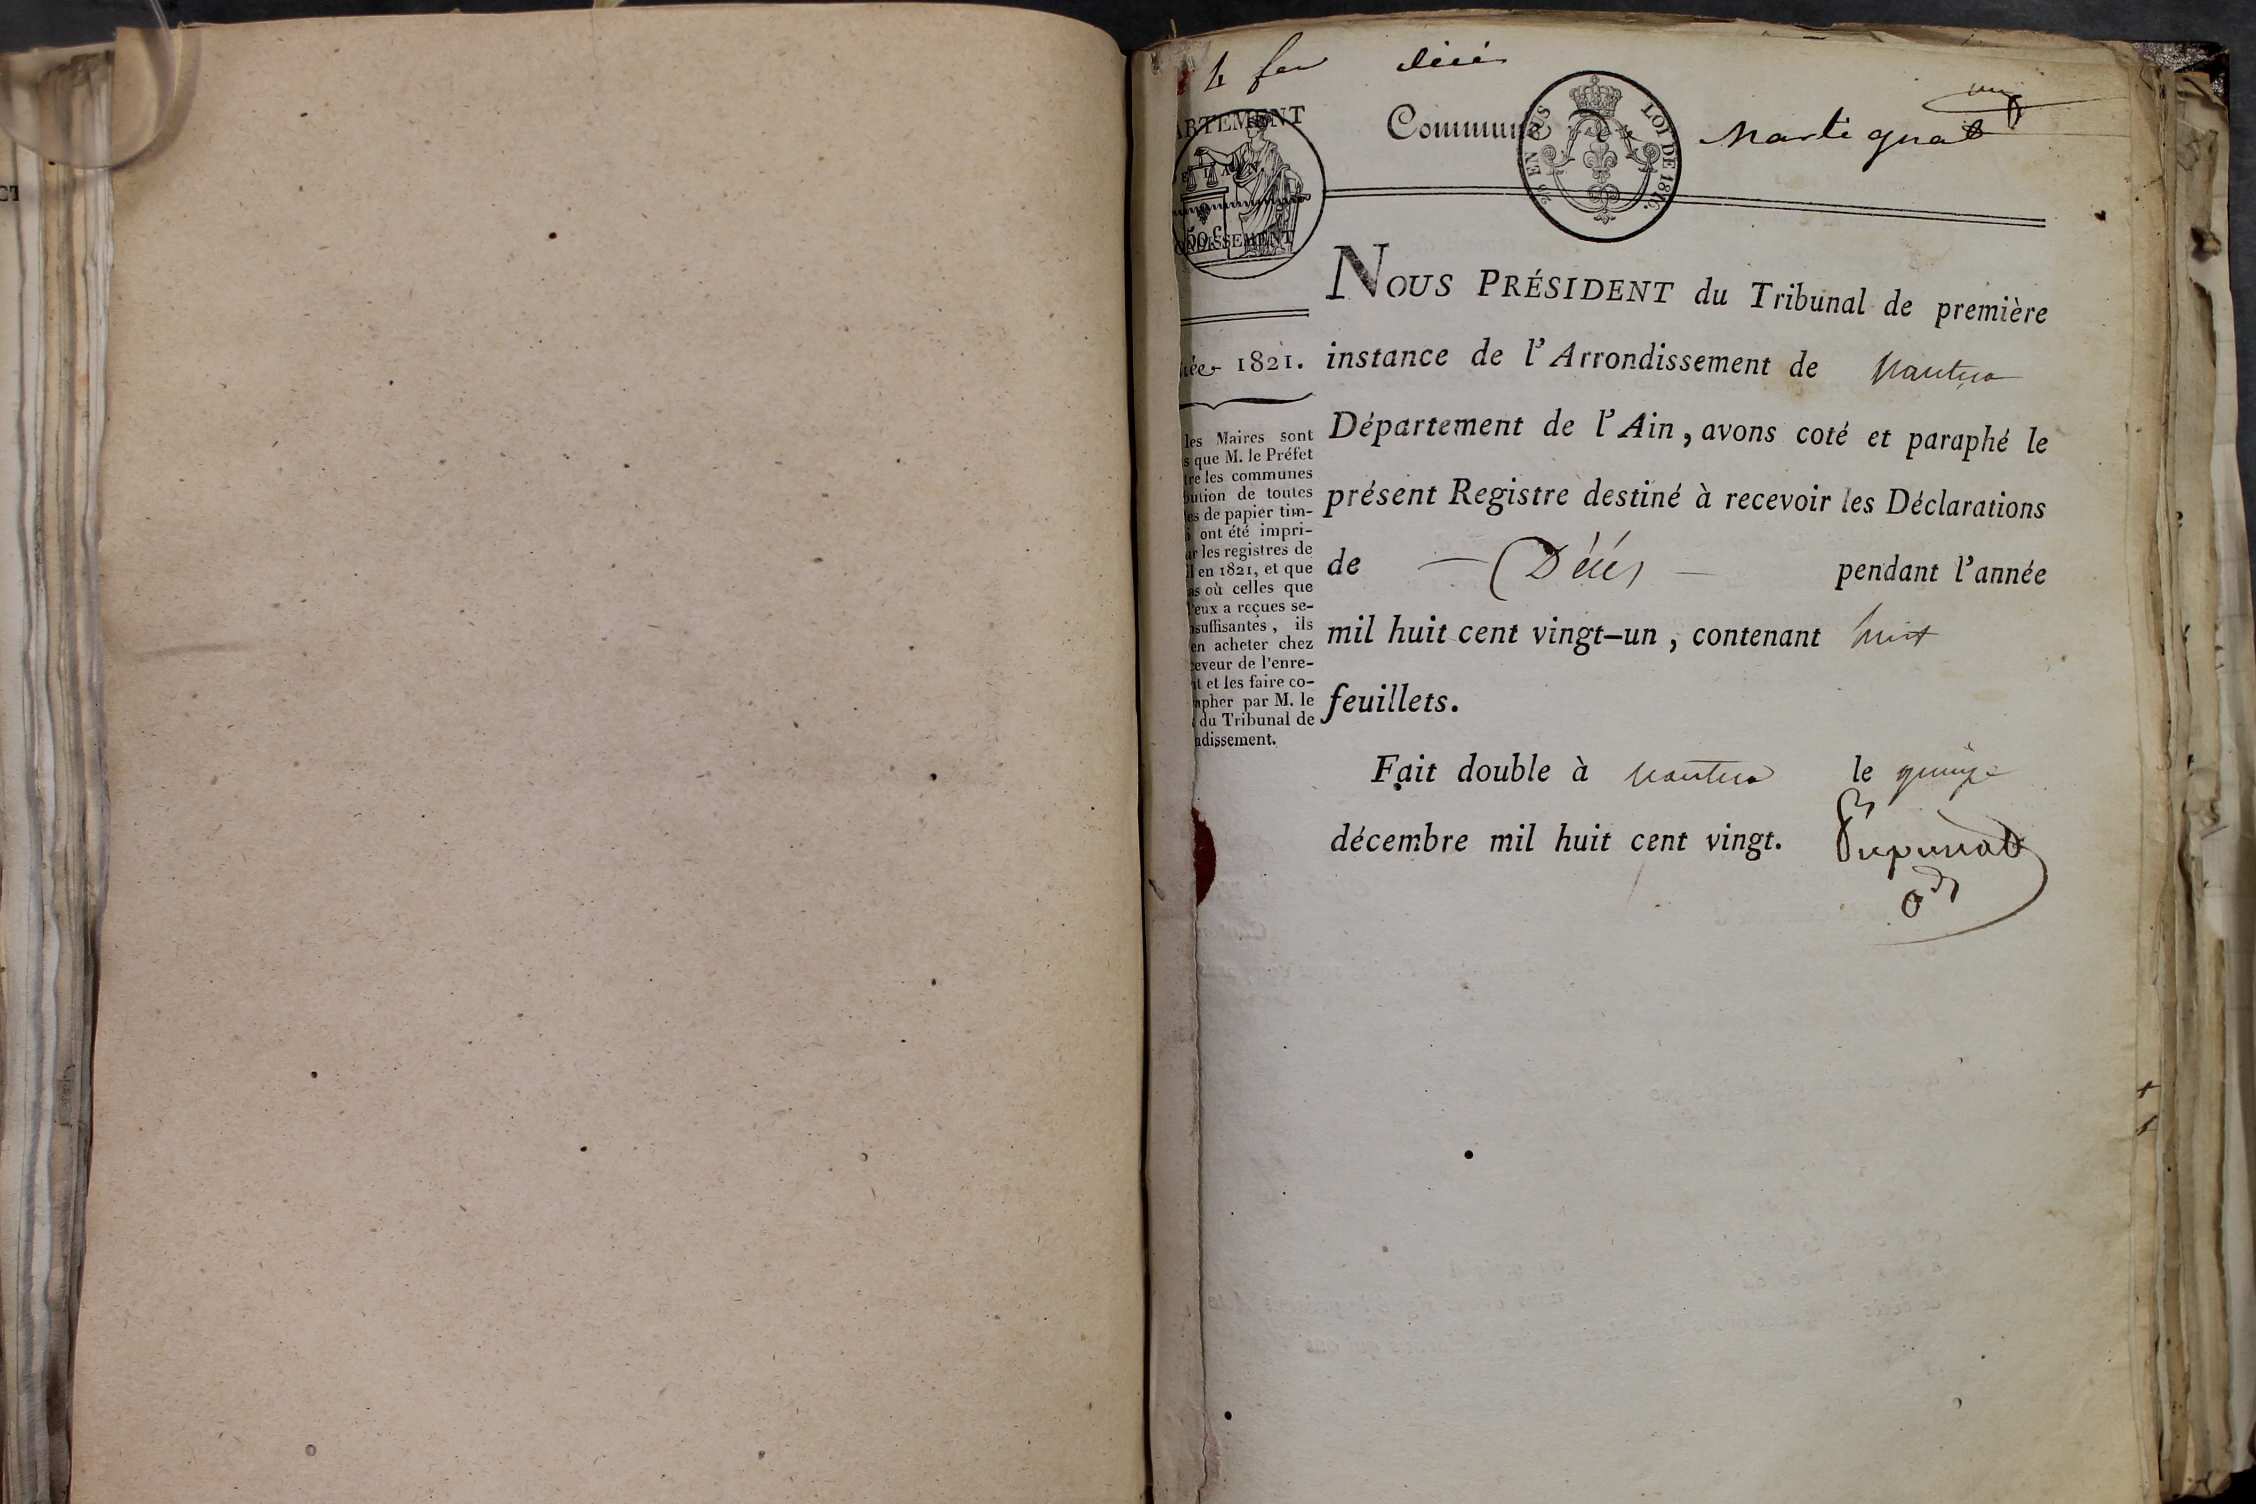 4 feu décès
ARTEMENT
Commune de Martignat
un
E L'AIN
2/3 EN SUS
LOI DE 1816.
50 c.
ONDISSEMENT
née 1821.
les Maires sont
s que M. le Préfet
tre les communes
bution de toutes
les de papier tim-
i ont été impri-
ur les registres de
il en 1821, et que
as où celles que
d'eux a reçues se-
nsuffisantes, ils
en acheter chez
ceveur de l'enre-
nt et les faire co-
apher par M. le
t du Tribunal de
ndissement.
NOUS PRÉSIDENT du Tribunal de première
instance de l'Arrondissement de Nantua
Département de l'Ain, avons coté et paraphé le
présent Registre destiné à recevoir les Déclarations
de — Décès — pendant l'année
mil huit cent vingt-un, contenant huit
feuillets.
Fait double à Nantua le quinze
décembre mil huit cent vingt.